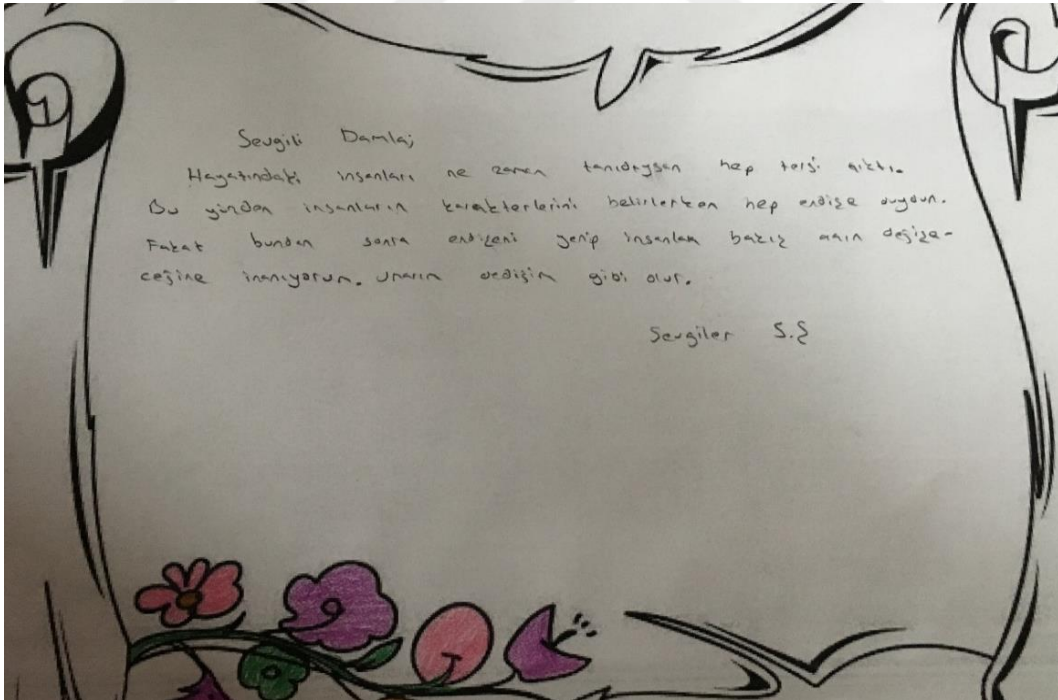 Sevgili Damla;
Hayatındaki insanları ne zaman tanıdıysan hep tersi çıktı.
Bu yüzden insanların karakterlerini belirlerken hep endişe duydun.
Fakat bundan sonra endişeni yenip insanlara bakış açın değişe-
ceğine inanıyorum. Umarım dediğim gibi olur.
Sevgiler S.Ş